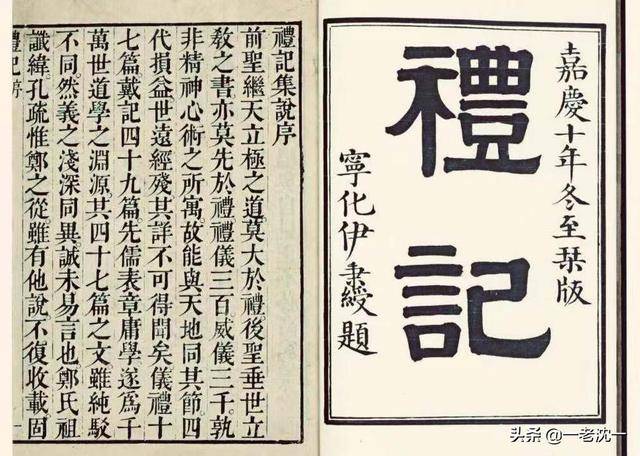 嘉慶十年冬至栞版
禮記
寧化伊秉綬題
禮記集說序
前聖繼天立極之道莫大於禮後聖垂世立
敎之書亦莫先於禮禮儀三百威儀三千孰
非精神心術之所寓故能與天地同其節四
代損益世遠經殘其詳不可得聞矣儀禮十
七篇戴記四十九篇先儒表章庸學遂爲千
萬世道學之淵源其四十七篇之文雖純駁
不同然義之淺深同異誠未易言也鄭氏祖
讖緯孔疏惟鄭之從雖有他說不復收載固
禮記序
头条 @一老沈一